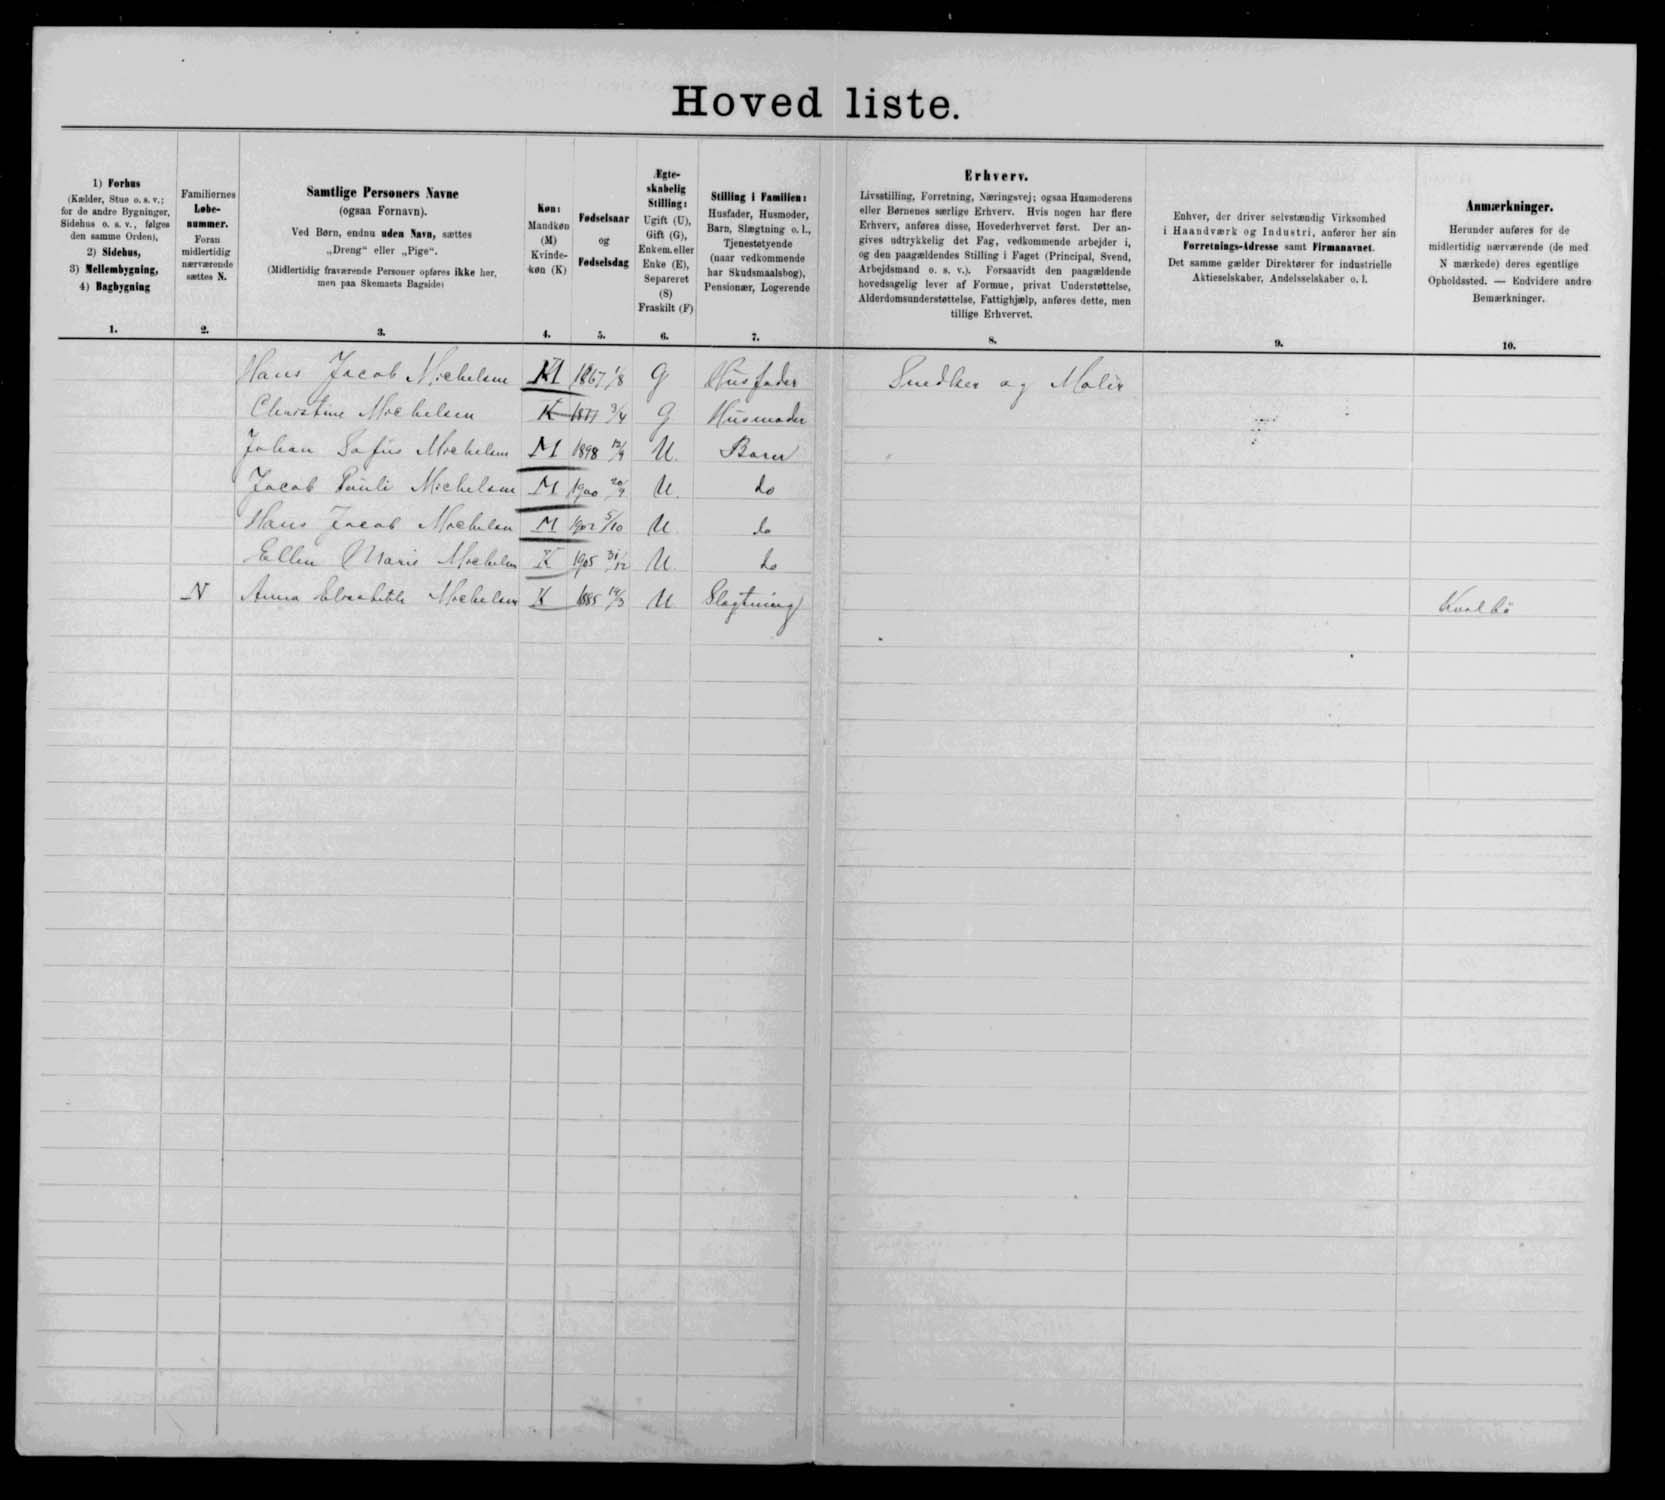 Hoved liste.
1) Forhus
(Kælder, Stue o. s. v.;
for de andre Bygninger,
Sidehus o. s. v., følges
den samme Orden),
2) Sidehus,
3) Mellembygning,
4) Bagbygning
1.
Familiernes
Løbe-
nummer.
Foran
midlertidig
nærværende
sættes N.
2.
Samtlige Personers Navne
(ogsaa Fornavn).
Ved Børn, endnu uden Navn, sættes
„Dreng“ eller „Pige“.
(Midlertidig fraværende Personer opføres ikke her,
men paa Skemaets Bagside)
3.
Køn:
Mandkøn
(M)
Kvinde-
køn (K)
4.
Fødselsaar
og
Fødselsdag
5.
Ægte-
skabelig
Stilling:
Ugift (U),
Gift (G),
Enkem. eller
Enke (E),
Separeret
(S)
Fraskilt (F)
6.
Stilling i Familien:
Husfader, Husmoder,
Barn, Slægtning o. l.,
Tjenestetyende
(naar vedkommende
har Skudsmaalsbog),
Pensionær, Logerende
7.
Erhverv.
Livsstilling, Forretning, Næringsvej; ogsaa Husmoderens
eller Børnenes særlige Erhverv. Hvis nogen har flere
Erhverv, anføres disse, Hovederhvervet først. Der an-
gives udtrykkelig det Fag, vedkommende arbejder i,
og den paagældendes Stilling i Faget (Principal, Svend,
Arbejdsmand o. s. v.). Forsaavidt den paagældende
hovedsagelig lever af Formue, privat Understøttelse,
Alderdomsunderstøttelse, Fattighjælp, anføres dette, men
tillige Erhvervet.
8.
Enhver, der driver selvstændig Virksomhed
i Haandværk og Industri, anfører her sin
Forretnings-Adresse samt Firmanavnet.
Det samme gælder Direktører for industrielle
Aktieselskaber, Andelsselskaber o. l.
9.
Anmærkninger.
Herunder anføres for de
midlertidig nærværende (de med
N mærkede) deres egentlige
Opholdssted. — Endvidere andre
Bemærkninger.
10.
Hans Jacob Michelsen M 1867 1/8 G Husfader Snedker og Maler
Christine Michelsen K 1877 3/4 G Husmoder
Johan Sofus Michelsen M 1898 12/9 U. Barn
Jacob Pauli Michelsen M 1900 20/9 U. do
Hans Jacob Michelsen M 1902 5/10 U do
Ellen Marie Michelsen K 1905 31/12 U. do
N Anna Elisabeth Michelsen K 1885 14/3 U Slægtning Kvalbø